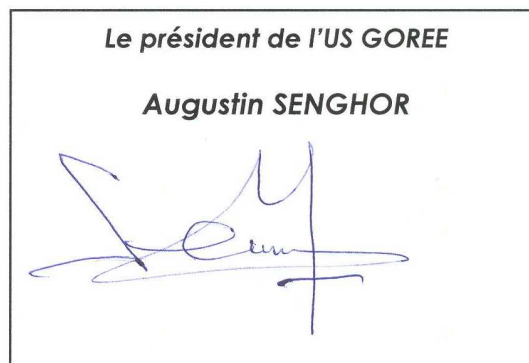 Le président de l'US GOREE
Augustin SENGHOR